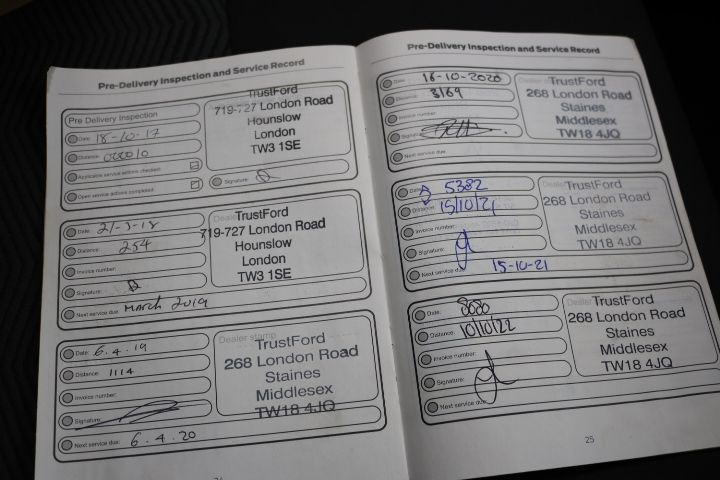 Pre-Delivery Inspection and Service Record
Pre Delivery Inspection
Date: 18-10-17
Distance: 000010
Applicable service actions checked:
Open service actions completed:
TrustFord
719-727 London Road
Hounslow
London
TW3 1SE
Signature:
Date: 21-3-18
Distance: 254
Invoice number:
Signature:
Next service due: MARCH 2019
TrustFord
719-727 London Road
Hounslow
London
TW3 1SE
Date: 6.4.19
Distance: 1114
Invoice number:
Signature:
Next service due: 6.4.20
Dealer stamp
TrustFord
268 London Road
Staines
Middlesex
TW18 4JQ
Pre-Delivery Inspection and Service Record
Date: 16-10-2020
Distance: 3169
Invoice number:
Signature:
Next service due:
TrustFord
268 London Road
Staines
Middlesex
TW18 4JQ
Date: 5382
Distance: 15/10/21
Invoice number:
Signature:
Next service due: 15-10-21
TrustFord
268 London Road
Staines
Middlesex
TW18 4JQ
Date: 8080
Distance: 10/10/22
Invoice number:
Signature:
Next service due:
TrustFord
268 London Road
Staines
Middlesex
TW18 4JQ
25